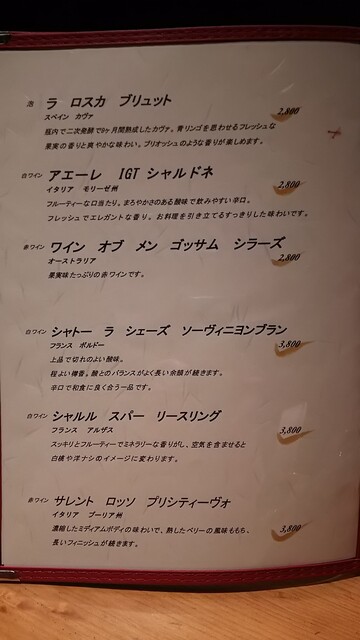 泡 ラ ロスカ ブリュット
スペイン カヴァ
2,800
瓶内で二次発酵で9ヶ月間熟成したカヴァ。青リンゴを思わせるフレッシュな
果実の香りと爽やかな味わい。ブリオッシュのような香りが楽しめます。
白ワイン アエーレ IGT シャルドネ
イタリア モリーゼ州
2,800
フルーティーな口当たり。まろやかさのある酸味で飲みやすい辛口。
フレッシュでエレガントな香り。お料理を引き立てるすっきりした味わいです。
赤ワイン ワイン オブ メン ゴッサム シラーズ
オーストラリア
2,800
果実味たっぷりの赤ワインです。
白ワイン シャトー ラ シェーズ ソーヴィニヨンブラン
フランス ボルドー
3,800
上品で切れのよい酸味。
程よい樽香。酸とのバランスがよく長い余韻が続きます。
辛口で和食に良く合う一品です。
白ワイン シャルル スパー リースリング
フランス アルザス
3,800
スッキリとフルーティーでミネラリーな香りがし、空気を含ませると
白桃や洋ナシのイメージに変わります。
赤ワイン サレント ロッソ プリシティーヴォ
イタリア プーリア州
3,800
濃縮したミディアムボディの味わいで、熟したベリーの風味ももち、
長いフィニッシュが続きます。